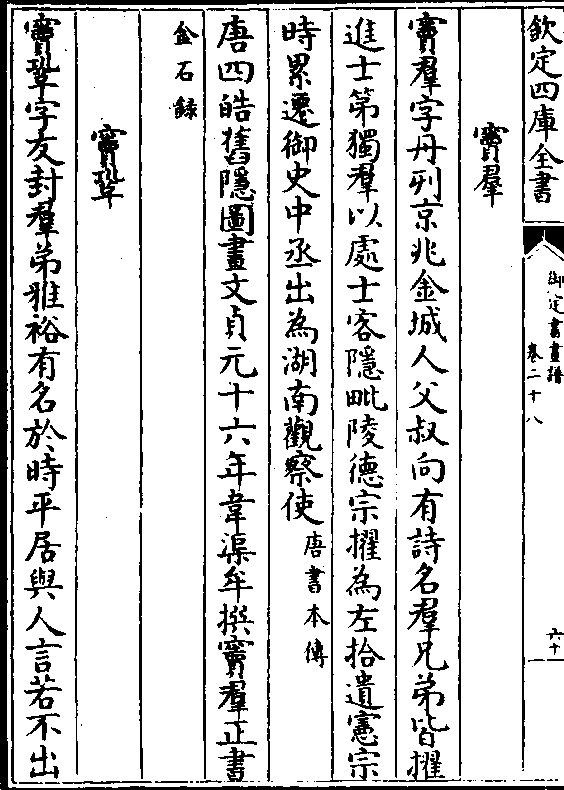 欽定四庫全書
御定書畫譜
卷二十八
六十
竇羣
竇羣字丹列京兆金城人父叔向有詩名羣兄弟皆擢
進士第獨羣以處士客隱毗陵德宗擢為左拾遺憲宗
時累遷御史中丞出為湖南觀察使唐書本傳
唐四皓舊隱圖畫文貞元十六年韋渠牟撰竇羣正書
金石錄
竇鞏
竇鞏字友封羣弟雅裕有名於時平居與人言若不出